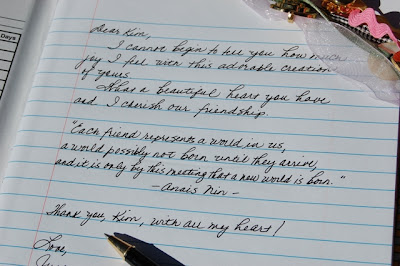 Days
Dear Kim,
I cannot begin to tell you how much
joy I feel with this adorable creation
of yours.
What a beautiful heart you have
and I cherish our friendship.
"Each friend represents a world in us,
a world possibly not born until they arrive,
and it is only by this meeting that a new world is born."
- Anais Nin -
Thank you, Kim, with all my heart!
Love,